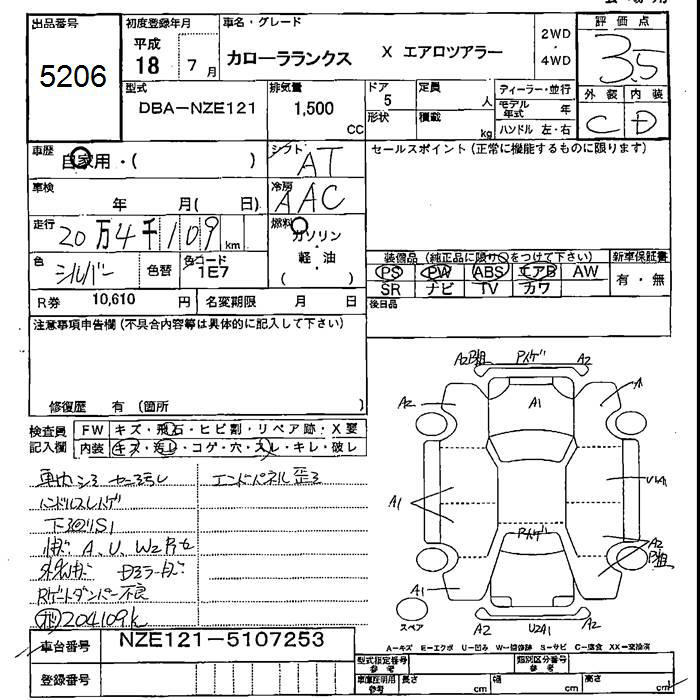 出品番号
5206
初度登録年月
平成
18 7 月
車名・グレード
カローラランクス X エアロツアラー
2WD
・
4WD
評価点
3.5
外装 内装
C D
型式
DBA-NZE121
排気量
1,500
CC
ドア
5
形状
定員
人
積載
kg
ディーラー・並行
モデル年式 年
ハンドル 左・右
車歴
自家用・( )
シフト
AT
車検
年 月( 日)
冷房
AAC
走行
20万4千109 km
燃料
ガソリン
・
軽・油
・
( )
色
シルバー
色替
色コード
1E7
R券 10,610 円
名変期限 月 日
セールスポイント(正常に機能するものに限ります)
装備品(純正品に限り○をつけて下さい)
新車保証書
PS PW ABS エアB AW
SR ナビ TV カワ
有・無
後日品
注意事項申告欄(不具合内容等は具体的に記入して下さい)
修復歴 有 (箇所 )
検査員
記入欄
FW キズ・飛石・ヒビ割・リペア跡・X要
内装 キズ・汚レ・コゲ・穴・スレ・キレ・破レ
エンドパネル歪ミ
ハンドルスレハゲ
A、U、W2
Rゲートダンパー不良
204109k
A2
Pハゲ
A2
A2
A
A1
A1
U1A1
Pハゲ
A2
A1
スペア
A2
U2A1
A2
A-キズ E-エクボ U-凹み W-補修跡 S-サビ C-腐食 XX-交換済
車台番号
NZE121-5107253
登録番号
型式指定番号
参考
類別区分番号
参考
車庫証明用
参考
長さ cm
幅 cm
高さ cm